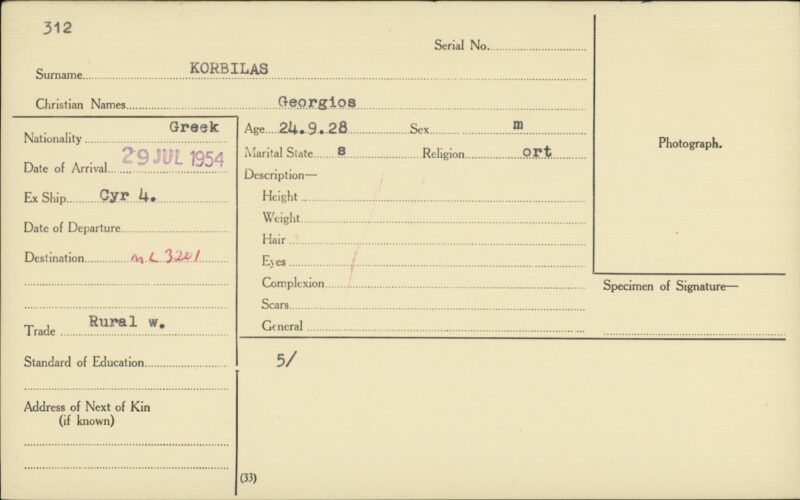 312
Serial No.
Surname KORBILAS
Christian Names Georgios
Nationality Greek
Date of Arrival 29 JUL 1954
Ex Ship Cyr 4.
Date of Departure
Destination ML 3201
Trade Rural w.
Standard of Education
Address of Next of Kin
(if known)
Age 24.9.28 Sex m
Marital State s Religion ort
Description—
Height
Weight
Hair
Eyes
Complexion
Scars
General
5/
(33)
Photograph.
Specimen of Signature—